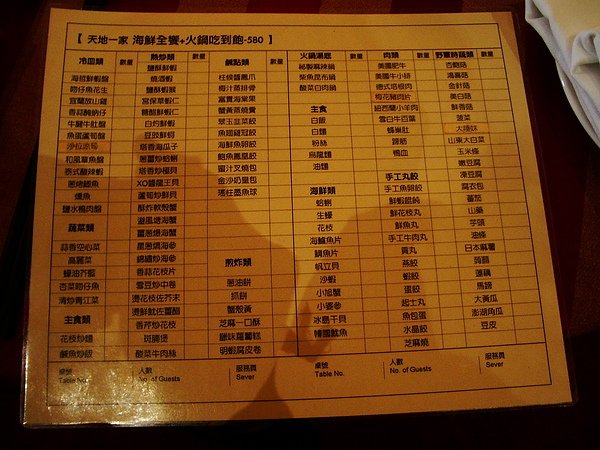 【 天地一家 海鮮全饗+火鍋吃到飽-580 】
冷盤類 數量 熱炒類 數量 鹹點類 數量 火鍋湯底 數量 肉類 數量 野蕈時蔬類 數量
海哲鮮蝦盤
吻仔魚花生
宜蘭放山雞
香蒜醃蜆仔
牛腱牛肚盤
魚蛋蘆筍盤
沙拉涼筍
和風章魚盤
泰式酸辣蝦
蔥烤鯽魚
燻魚
鹽水鴨肉盤
蔬菜類
蒜香空心菜
高麗菜
蠔油芥藍
杏菜吻仔魚
清炒青江菜
主食類
花枝炒麵
鹹魚炒飯
鹽酥鮮蝦
燒酒蝦
鹽酥蝦猴
宮保草蝦仁
糖醋鮮蝦仁
白灼鮮蝦
豆豉鮮蚵
塔香海瓜子
蔥薑炒蛤蜊
塔香炒風貝
XO醬龍王貝
蘆筍炒鮮貝
酥炸軟殼蟹
避風塘海蟹
薑蔥燒海蟹
星蔥燒海參
錦繡炒海參
香蒜花枝片
雪豆炒中卷
燙花枝佐芥末
燙鮮魷佐薑醋
香芹炒花枝
斑腩煲
酸菜牛肉絲
柱候醬鳳爪
梅汁蒸排骨
富貴海棠果
蟹黃蒸燒賣
翠玉韭菜餃
魚翅鍾冠餃
海鮮魚卵餃
鮑魚鳳凰餃
蜜汁叉燒包
金沙奶皇包
瑤柱墨魚球
煎炸類
蔥油餅
抓餅
蟹殼黃
芝麻一口酥
臘味蘿蔔糕
明蝦腐皮卷
秘製麻辣鍋
柴魚昆布鍋
酸菜白肉鍋
主食
白飯
白麵
粉絲
烏龍麵
油麵
海鮮類
蛤蜊
生蠔
花枝
海鱸魚片
鯛魚片
帆立貝
沙蝦
小旭蟹
小婆參
冰島干貝
韓國魷魚
美國肥牛
美國牛小排
德式培根肉
梅花豬肉片
紐西蘭小羊肉
雪白牛百葉
蜂巢肚
蹄筋
鴨血
手工丸餃
手工魚卵餃
鮮蝦餛飩
鮮花枝丸
鮮魚丸
手工牛肉丸
貢丸
燕餃
蝦餃
蛋餃
起士丸
魚包蛋
水晶餃
芝麻燒
杏鮑菇
鴻喜菇
金針菇
美白菇
鮮香菇
菠菜
大陸妹
山東大白菜
玉米條
嫩豆腐
凍豆腐
腐衣包
番茄
山藥
芋頭
油條
日本麻薯
蒟蒻
蓮藕
馬蹄
大黃瓜
澎湖角瓜
豆皮
桌號 人數 服務員 桌號 人數 服務員
Table No. No. of Guests Sever Table No. No. of Guests Sever